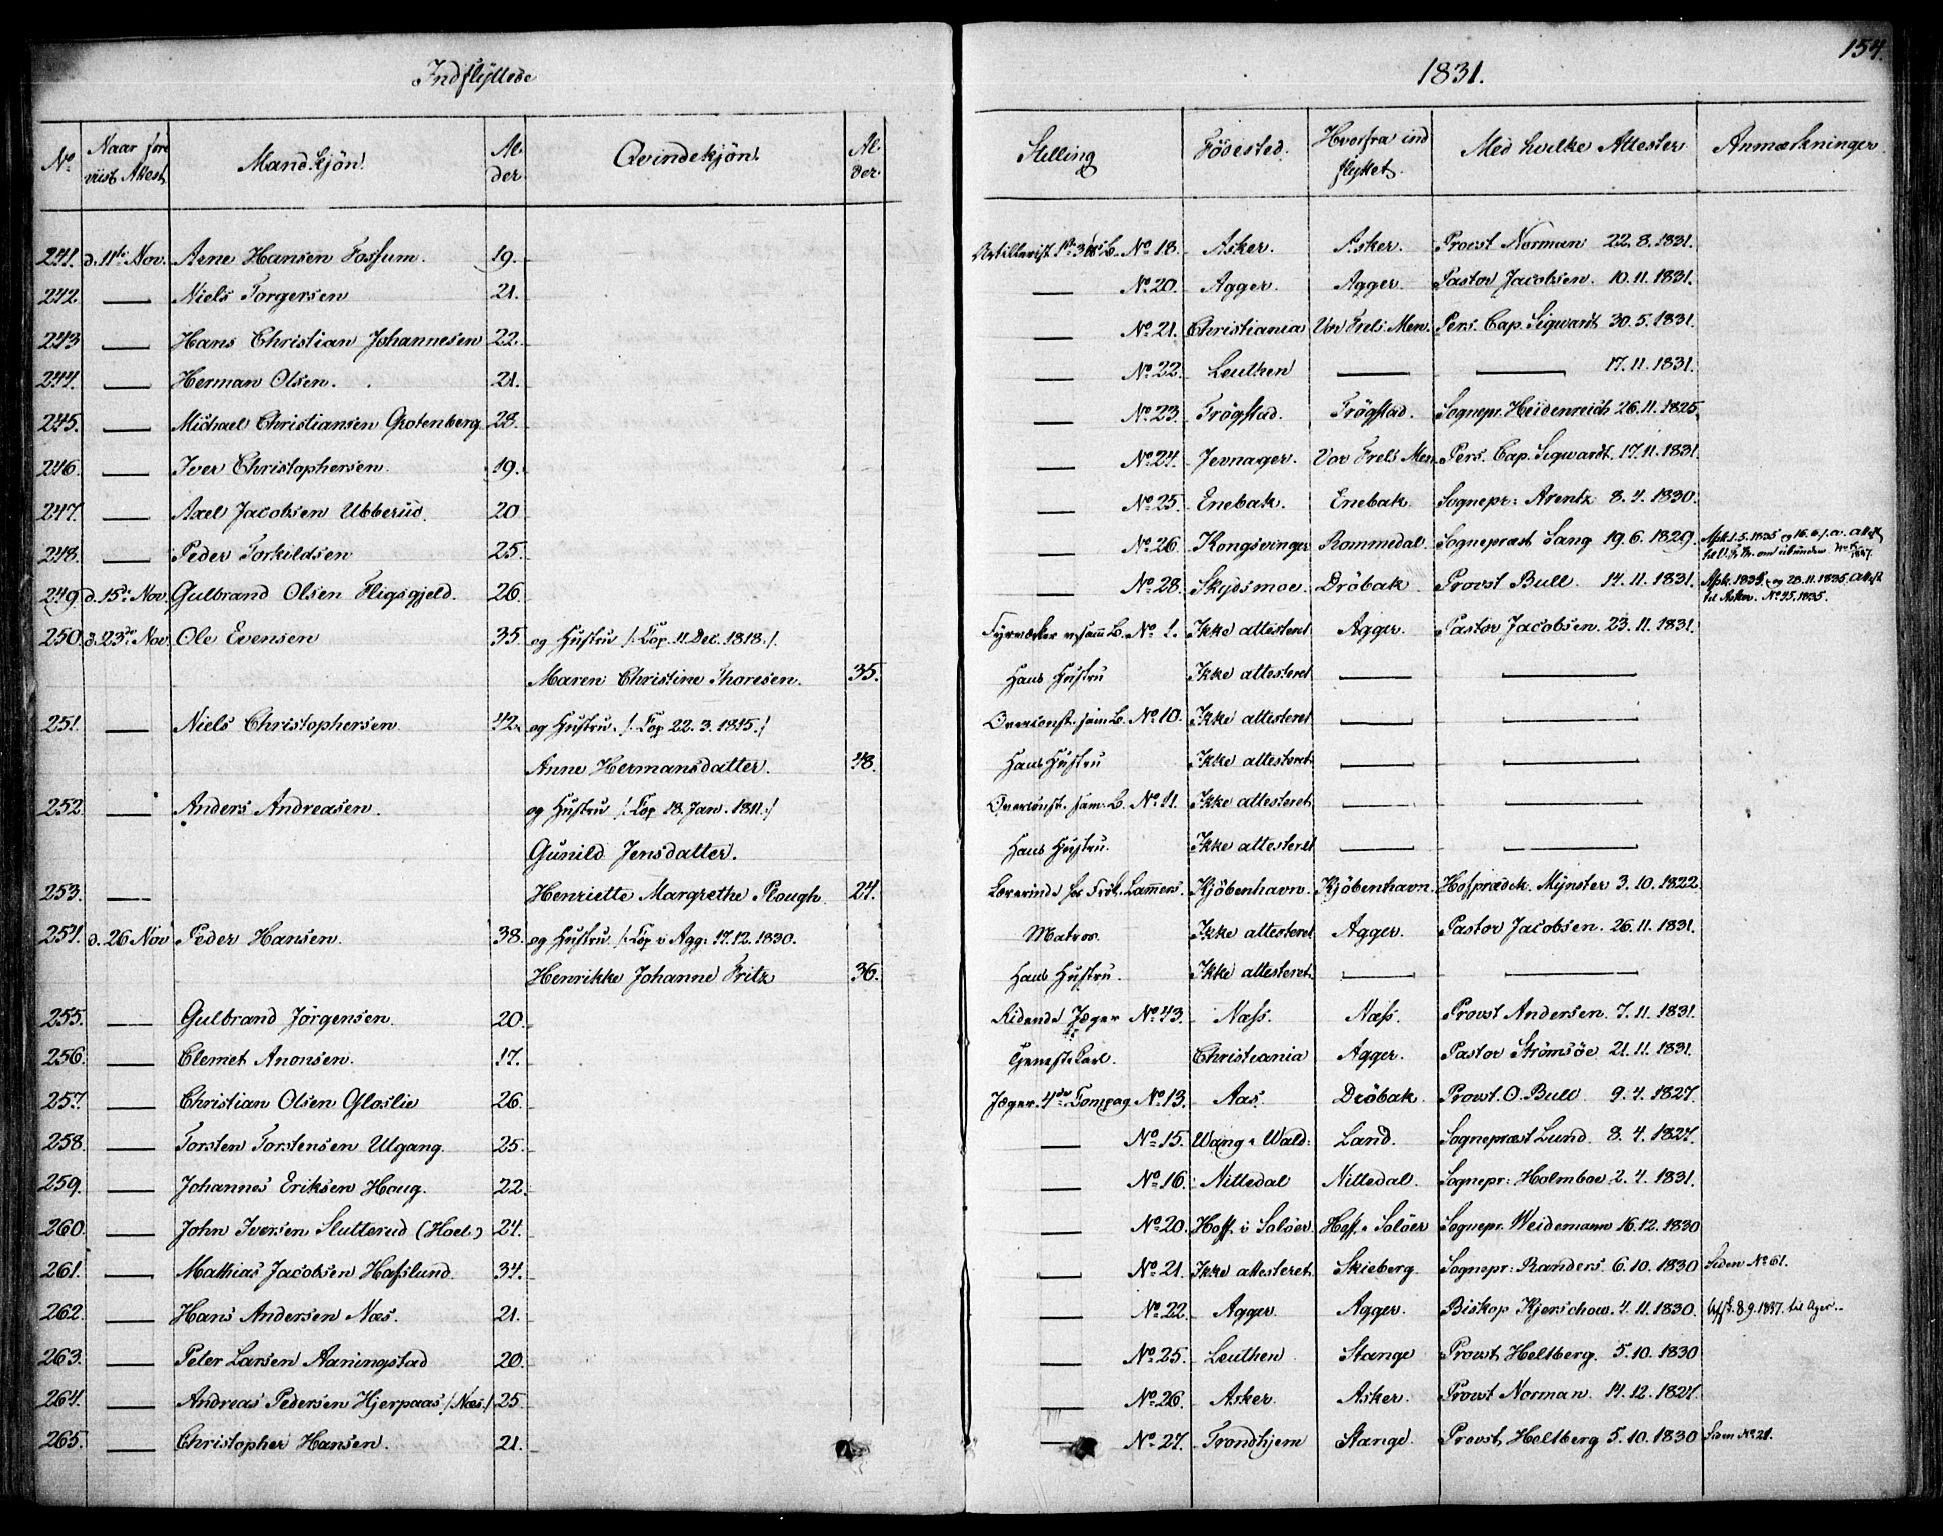 154.
Indflyttede 1831.
No. Naar fore viist Attest Mandkjön. Al- der. Qvindekjön. Al- der. Stilling Födested. Hvorfra ind flyttet. Med hvilke Attester Anmærkninger.
241. d. 11te Nov. Arne Hansen Fossum. 19. Artillerist No. 18. Asker. Asker. Provst Norman 22.8.1831.
242 — Niels Torgersen 21. — No. 20. Agger. Agger. Pastor Jacobsen. 10.11.1831.
243 — Hans Christian Johannesen 22. — No. 21. Christiania Vor Frels. Men. Pers. Cap. Sigwardt 30.5.1831.
244. — Herman Olsen. 21. — No. 22. Leuthen — — 17.11.1831.
245. — Michael Christiansen Grotenberg 28. — No. 23. Trögstad. Trögstad. Sognepr. Heidenreich 26.11.1825.
246. — Iver Christophersen. 19. — No. 24. Jevnager. Vor Frels Men. Pers. Cap. Sigwardt. 17.11.1831.
247. — Axel Jacobsen Ubberud. 20 — No. 25. Enebak. Enebak. Sognepr: Arentz 8.4.1830.
248. — Peder Torkildsen 25. — No. 26. Kongsvinger Rommedal. Sogneprest Sang 19.6.1829.
249. d. 15de Nov. Gulbrand Olsen Fligsgjeld. 26 — No. 28. Skydsmoe Dröbak. Provst Bull 14.11.1831. Afsk. 1834 og 28.11.1835. Attest til Asker. No. 45. 1835.
250. d. 23de Nov. Ole Evensen 35. og Hustru /: Cop. 11. Dec. 1818./. Fyrverker v. samm B. No. 1. Ikke attesteret Agger. Pastor Jacobsen. 23.11.1831.
Maren Christine Thoresen. 35. Hans Hustru Ikke attesteret — —
251. — Niels Christophersen 42. og Hustru. /: Cop 22.3.1815./ Overconst. sam. B. No. 10. Ikke attesteret — —
Anne Hermansdatter. 48. Hans Hustru Ikke attesteret — —
252. — Anders Andreasen. og Hustru /: Cop 18. Jan. 1811./ Overconst. sam. B. No. 11. Ikke attesteret — —
Gunild Jensdatter. Hans Hustru. Ikke attesteret — —
253. — Henriette Margrethe Plough. 24. Lærerinde hos Frök. Lammers. Kjöbenhavn. Kjöbenhavn. Hofprædek. Mynster 3.10.1822.
254. d. 26 Nov Peder Hansen. 38. og Hustru. /: Cop i Agg: 17.12.1830. Matros. Ikke attesteret Agger. Pastor Jacobsen. 26.11.1831.
Henrikke Johanne Fritz 36. Hans Hustru. Ikke attesteret. — —
255. — Gulbrand Jörgensen. 20. Ridende Jæger No. 43. Næss. Næss. Provst Andersen. 7.11.1831.
256. — Clemet Anonsen. 17. Tjeneste Karl. Christiania Agger. Pastor Strömsöe 21.11.1831.
257. — Christian Olsen Gloslie 26. Jæger. 4de Compag. No. 13. Aas. Dröbak. Provst. O. Bull 9.4.1827.
258. — Torsten Torstensen Ulgang. 25. — No. 15. Wang i Wald: Land. Sogneprest Lund. 8.4.1827.
259. — Johannes Eriksen Houg. 22. — No. 16. Nittedal Nittedal. Sognepr: Holmboe 2.4.1831.
260. — John Iversen Slutterud (Hoel) 24. — No. 20. Hoff. i Solöer. Hoff. i Solöer Sognepr. Weidemann 16.12.1830
261. — Mathias Jacobsen Hafslund. 34. — No. 21. Ikke attesteret. Skieberg. Sognepr: Randers. 6.10.1830 Siden No. 61.
262. — Hans Andersen Næs. 21. — No. 22. Agger. Agger. Biskop Kjerschow. 4.11.1830. Afsk. 8.9.1837. til Ager.
263. — Peter Larsen Aaningstad 20. — No. 25. Leuthen Stange Provst Heltberg. 5.10.1830
264. — Andreas Pedersen Hjerpaas /Næs./ 25. — No. 26. Asker. Asker. Provst Norman. 14.12.1827.
265. — Christopher Hansen. 21. — No. 27. Trondhjem Stange. Provst Heltberg 5.10.1830 Sam No. 21.